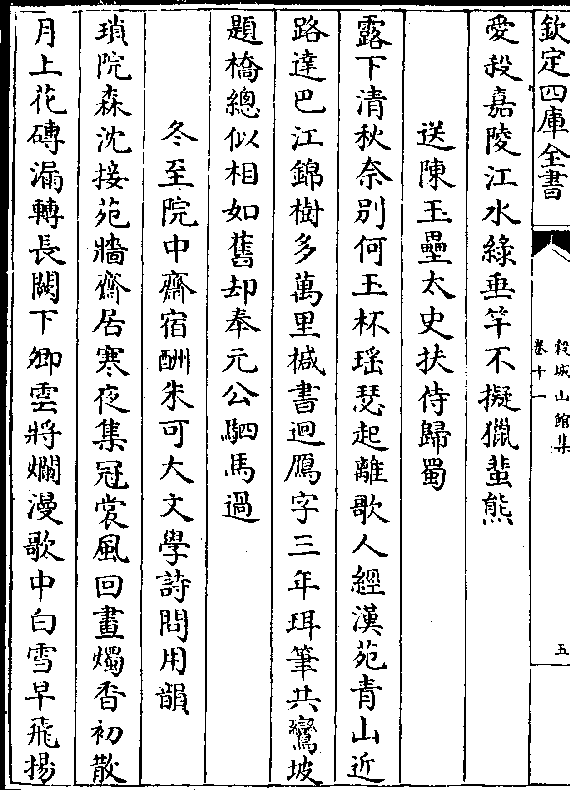 欽定四庫全書
穀城山館集
卷十一
五
愛殺嘉陵江水綠垂竿不擬獵蜚熊
送陳玉壘太史扶侍歸蜀
露下清秋奈別何玉杯瑤瑟起離歌人經漢苑青山近
路達巴江錦樹多萬里緘書迴鴈字三年珥筆共鸞坡
題橋總似相如舊却奉元公駟馬過
冬至院中齋宿酬朱可大文學詩問用韻
瑣院森沈接苑牆齋居寒夜集冠裳風回畫燭香初散
月上花磚漏轉長闕下卿雲將爛漫歌中白雪早飛揚